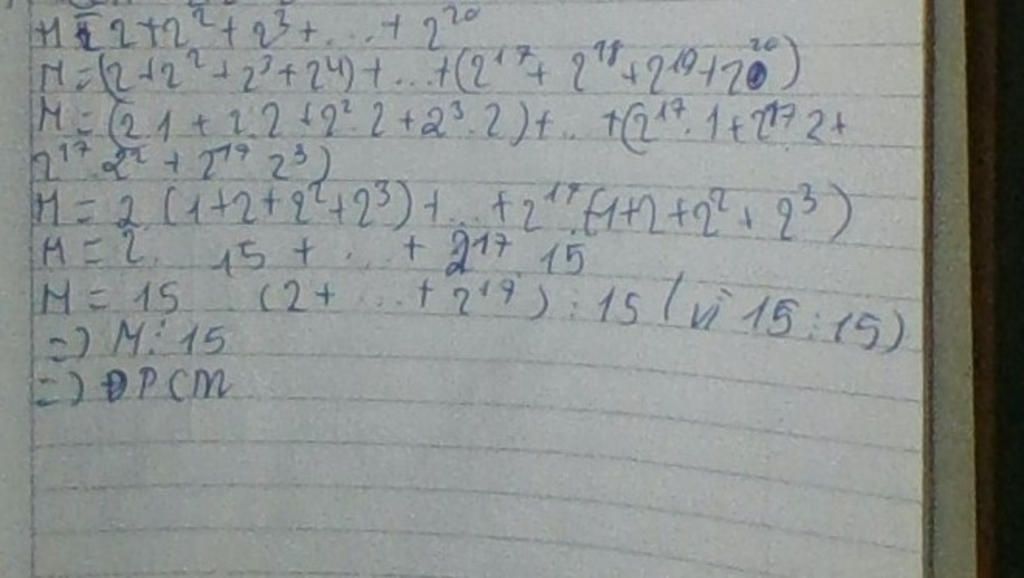 M = 2+2² + 2³ + ... + 2²⁰
M = (2 + 2² + 2³ + 24) + ... + (2¹⁷ + 2¹⁸ + 2¹⁹ + 2²⁰)
M = (2.1 + 2.2 + 2².2 + 2³.2) + .. + (2¹⁷.1 + 2¹⁷.2 +
2¹⁷.2² + 2¹⁷ 2³)
M = 2 (1+2+2²+2³) + ... + 2¹⁷.(1+2+2²+2³)
M = 2. 15 + ... + 2¹⁷ 15
M = 15 (2 + ... + 2¹⁷) ⋮ 15 (vì 15 ⋮ 15)
=) M ⋮ 15
=) ĐPCM